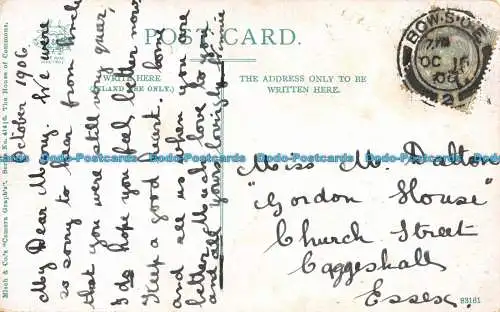 POST CARD.
WRITE HERE
(INLAND USE ONLY.)
THE ADDRESS ONLY TO BE
WRITTEN HERE.
BOW.S.O.E
OC 15
06
2
October 1906
My Dear Maray. We were
so sorry to hear from Uncle
that you were still very queer,
I do hope you feel better now
Keep a good heart. & come
and see us when you are
better. Much love to you
and all yours lovingly
Miss M. Dalton
"Gordon House"
Church Street
Coggeshall
Essex.
Misch & Co.'s "Camera Graphs". Series No. 414/6. The House of Commons.
83161
Bodo-Postcards Bodo-Postcards Bodo-Postcards Bodo-Postcards Bodo-Postcards